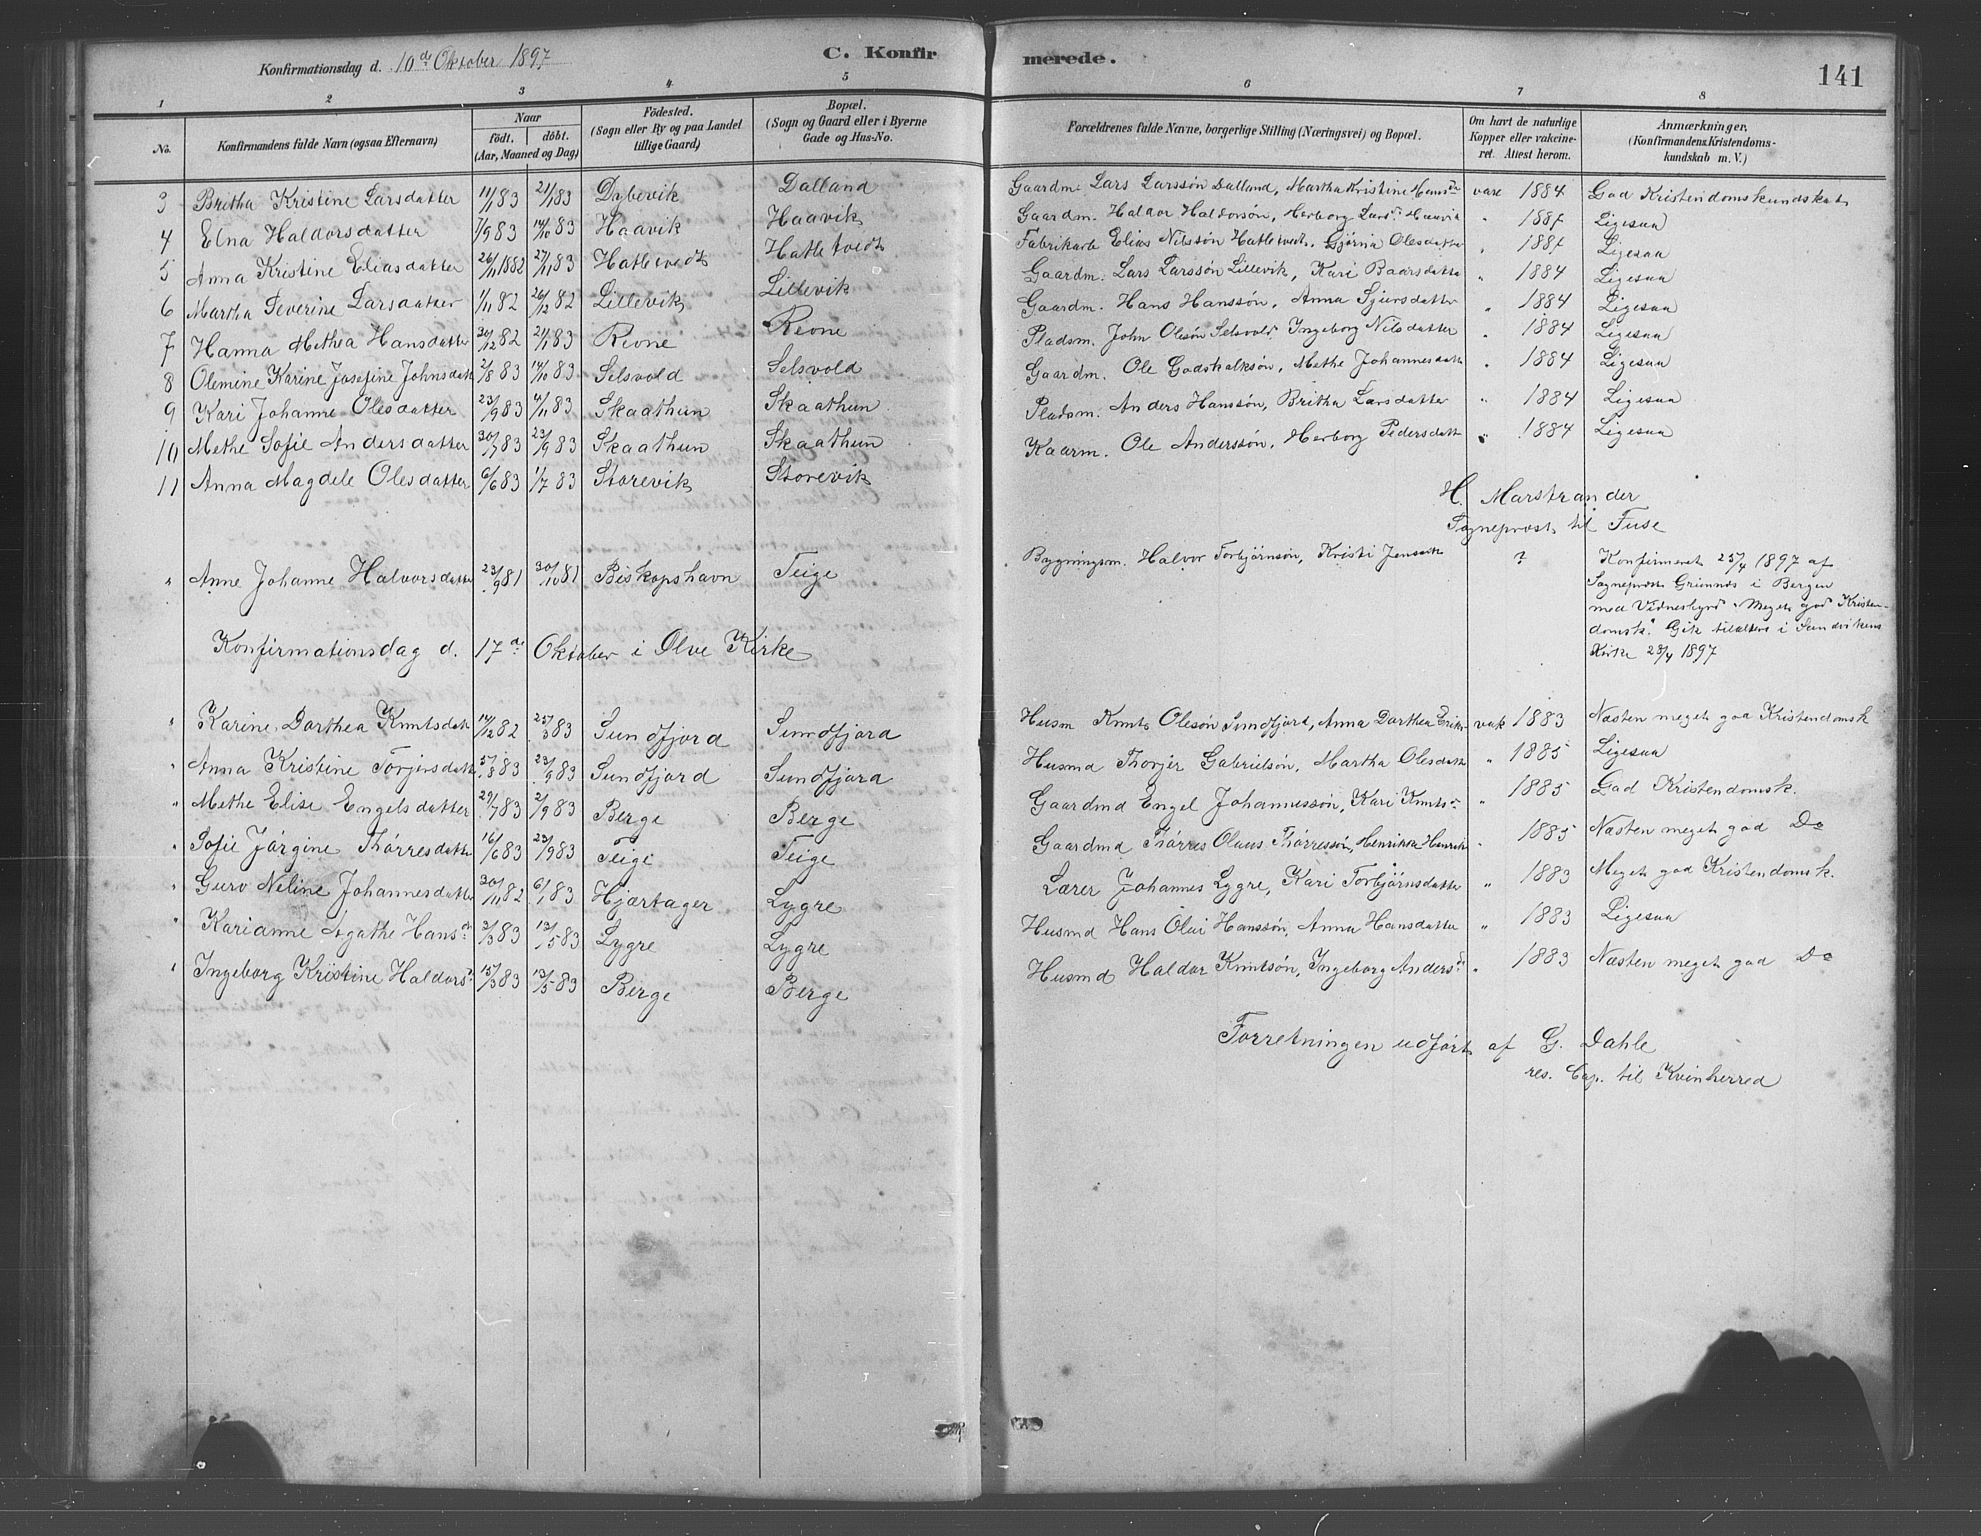 Konfirmationsdag d. 10de Oktober 1897
C. Konfirmerede.
141
1 2 3 4 5 6 7 8
No. Konfirmandens fulde Navn (ogsaa Efternavn) Naar født. døbt. (Aar, Maaned og Dag) Födested. (Sogn eller By og paa Landet tillige Gaard) Bopæl. (Sogn og Gaard eller i Byerne Gade og Hus-No. Forældrenes fulde Navne, borgerlige Stilling (Næringsvei) og Bopæl. Om havt de naturlige Kopper eller vakcineret. Attest herom. Anmærkninger. (Konfirmandens Kristendomskundskab m. V.)
3 Britha Kristine Larsdatter 11/1 83 21/1 83 Dybevik Dalland Gaardm. Lars Larssøn Dalland, Martha Kristine Hansdr vacc 1884 God Kristendomskundskab
4 Elna Haldorsdatter 7/9 83 14/10 83 Haavik Haavik Gaardm. Haldor Haldorsøn, Herborg Larsd. Haavik " 1887 Ligesaa
5 Anna Kristine Eliasdatter 26/11 1882 27/11 83 Hatletvedt Hatletvedt Fabrikarb Elias Nilssøn Hatletvedt, Gjørina Olesdatter " 1887 Ligesaa
6 Martha Severine Larsdatter 1/11 82 26/12 82 Lillevik Lillevik Gaardm. Lars Larssøn Lillevik, Kari Baarsdatter " 1884 Ligesaa
7 Hanna Methea Hansdatter 20/12 82 21/1 83 Revne Revne Gaardm. Hans Hanssøn, Anna Sjursdatter " 1884 Ligesaa
8 Olemine Karine Josefine Johnsdatt 2/8 83 14/10 83 Selsvold Selsvold Pladsm. John Olesøn Selsvold, Ingeborg Nilsdatter " 1884 Ligesaa
9 Kari Johanne Olesdatter 23/9 83 4/11 83 Skaathun Skaathun Gaardm. Ole Godskalksøn, Methe Johannesdatt " 1884 Ligesaa
10 Methe Sofie Andersdatter 30/7 83 23/9 83 Skaathun Skaathun Pladsm. Anders Hanssøn, Britha Larsdatter " 1884 Ligesaa
11 Anna Magdele Olesdatter 6/6 83 1/7 83 Storevik Storevik Kaarm. Ole Anderssøn, Herborg Pedersdatt " 1884 Ligesaa
H. Marstrander
Sogneprest til Fuse
" Anne Johanne Halvorsdatter 23/9 81 30/10 81 Biskopshavn Teige Bygningsm. Halvor Torbjørnsøn, Kristi Jensdatt ? Konfirmeret 25/4 1897 af
Sogneprest Grimnes i Bergen
med Vidnesbyrd "Meget god Kristen-
domsk." Gik tilalters i Sandvikens
Kirke 28/4 1897
Konfirmationsdag d. 17de Oktober i Ølve Kirke
" Karine Dorthea Knutsdatt 14/12 82 25/3 83 Sundfjord Sundfjord Husm Knut Olesøn Sundfjord, Anna Dorthea Eriks vak 1883 Næsten meget god Kristendomsk
" Anna Kristine Torjersdatt 5/8 83 23/9 83 Sundfjord Sundfjord Husmd Thorjer Gabrielsøn, Martha Olesdatt " 1885 Ligesaa
" Methe Elise Engelsdatter 29/7 83 2/9 83 Berge Berge Gaardmd Engel Johannessøn, Kari Knutsdr " 1885 God Kristendomsk.
" Sofie Jørgine Thørresdatter 16/6 83 23/9 83 Teige Teige Gaardmd Thørres Olaus Thørressøn, Henrikka Henriks " 1885 Næsten meget god Do
" Guro Neline Johannesdatter 30/11 82 6/1 83 Hjartager Lygre Lærer Johannes Lygre, Kari Torbjørnsdatter " 1883 Meget god Kristendomsk.
" Karianne Agathe Hansdr 2/3 83 13/5 83 Lygre Lygre Husmd Hans Olai Hanssøn, Anna Hansdatter " 1883 Ligesaa
" Ingeborg Kristine Haldorsd 15/3 83 13/5 83 Berge Berge Husmd Haldor Knutsøn, Ingeborg Andersdr " 1883 Næsten meget god Do
Forretningen udført af G. Dahle
res. Cap. til Kvinherred